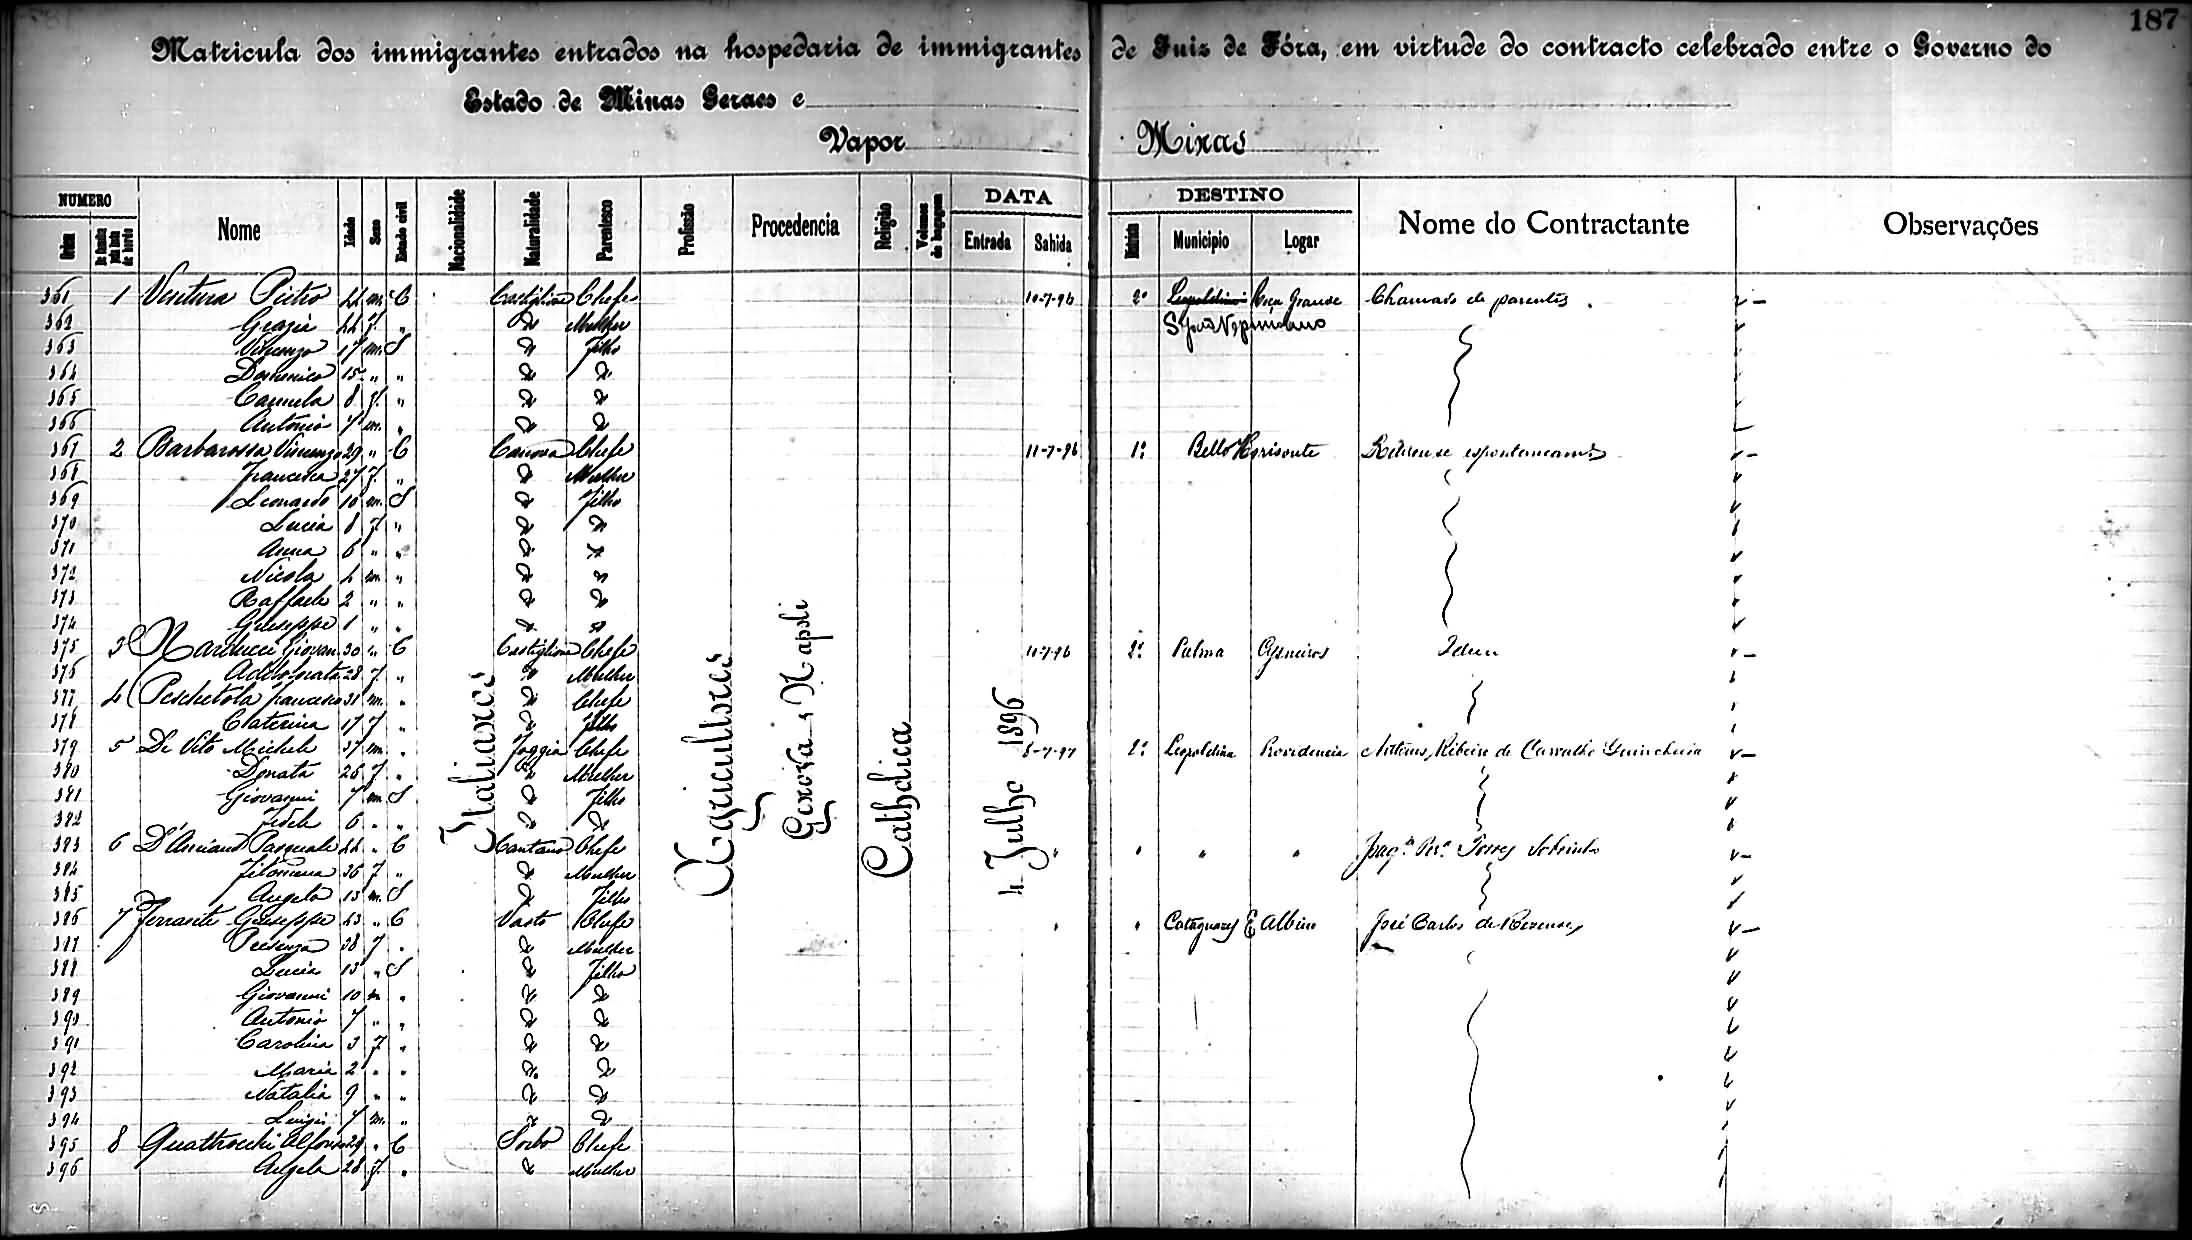 187
Matricula dos immigrantes entrados na hospedaria de immigrantes de Juiz de Fóra, em virtude do contracto celebrado entre o Governo do
Estado de Minas Geraes e
Vapor Minas
NUMERO Nome Idade Sexo Estado civil Nacionalidade Naturalidade Parentesco Profissão Procedencia Religião Volumes de bagagem DATA DESTINO Nome do Contractante Observações
Ordem Entrada Sahida Districto Municipio Logar
Italianos Agricultores Genova e Napoli Catholica 4 Julho 1896
361 1 Ventura Pietro 44 m. C Castiglione Chefe 10-7-96 2º Leopoldina Grande Chamado de parentes
362 Grazia 44 f. " Mulher S João Nepomuceno
363 Vincenzo 17 m. S Filho
364 Domenico 15 " "
365 Carmela 8 f. "
366 Antonio 7 m. "
367 2 Barbarossa Vincenzo 29 " C Canosa Chefe 11-7-96 1º Bello Horisonte
368 Francesca 27 f. " Mulher
369 Leonardo 10 m. S Filho
370 Lucia 8 f. "
371 Anna 6 " "
372 Nicola 4 m "
373 Raffaele 2 " "
374 Giuseppe 1 " "
375 3 Narducci Giovan. 30 " C Castiglione Chefe 10-7-96 2º Palma Cysneiros Idem
376 Addolorata 28 f. " Mulher
377 4 Francesco 31 m. " Chefe
378 Caterina 17 f " Filho
379 5 De Vito Michele 37 m. " Foggia Chefe 8-7-97 2º Leopoldina Providencia Antonio Ribeiro de Carvalho
380 Donata 26 f. " Mulher
381 Giovanni 7 m S Filho
382 Fedele 6 " "
383 6 Pasquale 44 " C Chefe " " " " Torres Sobrinho
384 Filomena 36 f " Mulher
385 Angelo 13 m. S Filho
386 7 Ferrante Giuseppe 43 " C Vasto Chefe " " Cataguazes E Albino José Carlos de
387 38 f. " Mulher
388 Lucia 13 " S Filho
389 Giovanni 10 m "
390 Antonio 7 " "
391 Carolina 3 f. "
392 Maria 2 " "
393 Natalia 9 " "
394 Luigi 7 m. "
395 8 Quattrocchi Alfonso 29 " C Chefe
396 Angela 28 f. " Mulher